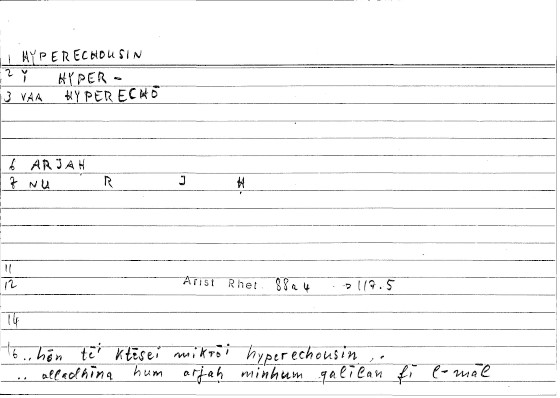 1 HYPERECHOUSIN
2 Y HYPER-
3 VAA HYPERECHŌ
6 ARJAḤ
7 NU R J Ḥ
11
12 Arist Rhet 88a4 → 117.5
14
16 ..hōn tēi ktēsei mikrōi hyperechousin ..
.. alladhīna hum arjaḥ minhum qalīlan fī l-māl